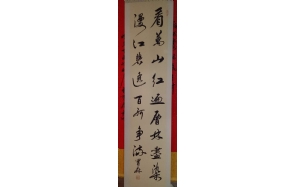 看萬山红遍層林盡染
漫江碧透百舸争流